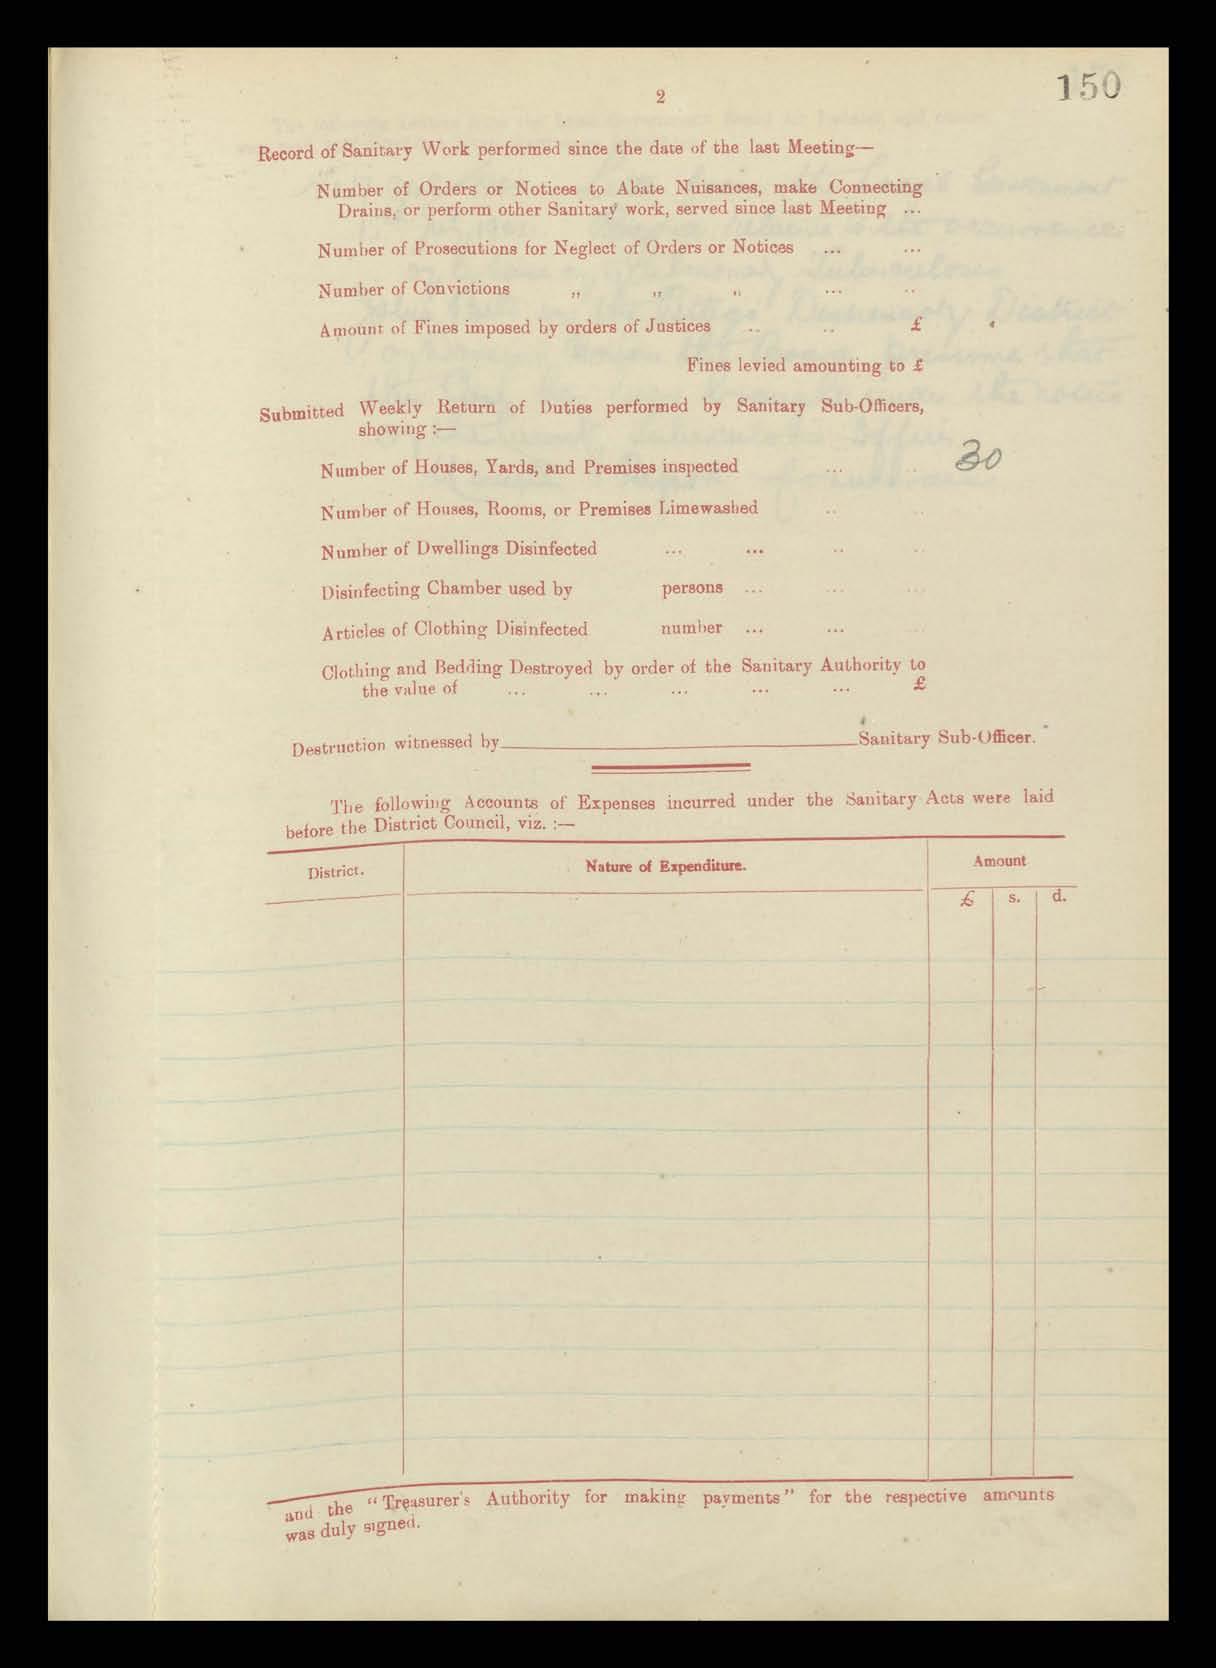 150
2
Record of Sanitary Work performed since the date of the last Meeting—
Number of Orders or Notices to Abate Nuisances, make Connecting
Drains, or perform other Sanitary work, served since last Meeting ...
Number of Prosecutions for Neglect of Orders or Notices ... ...
Number of Convictions „ „ „ ... ..
Amount of Fines imposed by orders of Justices .. .. £
Fines levied amounting to £
Submitted Weekly Return of Duties performed by Sanitary Sub-Officers,
showing :—
Number of Houses, Yards, and Premises inspected ... .. 30
Number of Houses, Rooms, or Premises Limewashed .. ..
Number of Dwellings Disinfected ... ... .. ..
Disinfecting Chamber used by persons ... ... ...
Articles of Clothing Disinfected number ... ... ..
Clothing and Bedding Destroyed by order of the Sanitary Authority to
the value of ... ... ... ... ... £
Destruction witnessed by Sanitary Sub-Officer.
The following Accounts of Expenses incurred under the Sanitary Acts were laid
before the District Council, viz. :—
District. Nature of Expenditure. Amount
£ s. d.
and the "Treasurer's Authority for making payments" for the respective amounts
was duly signed.